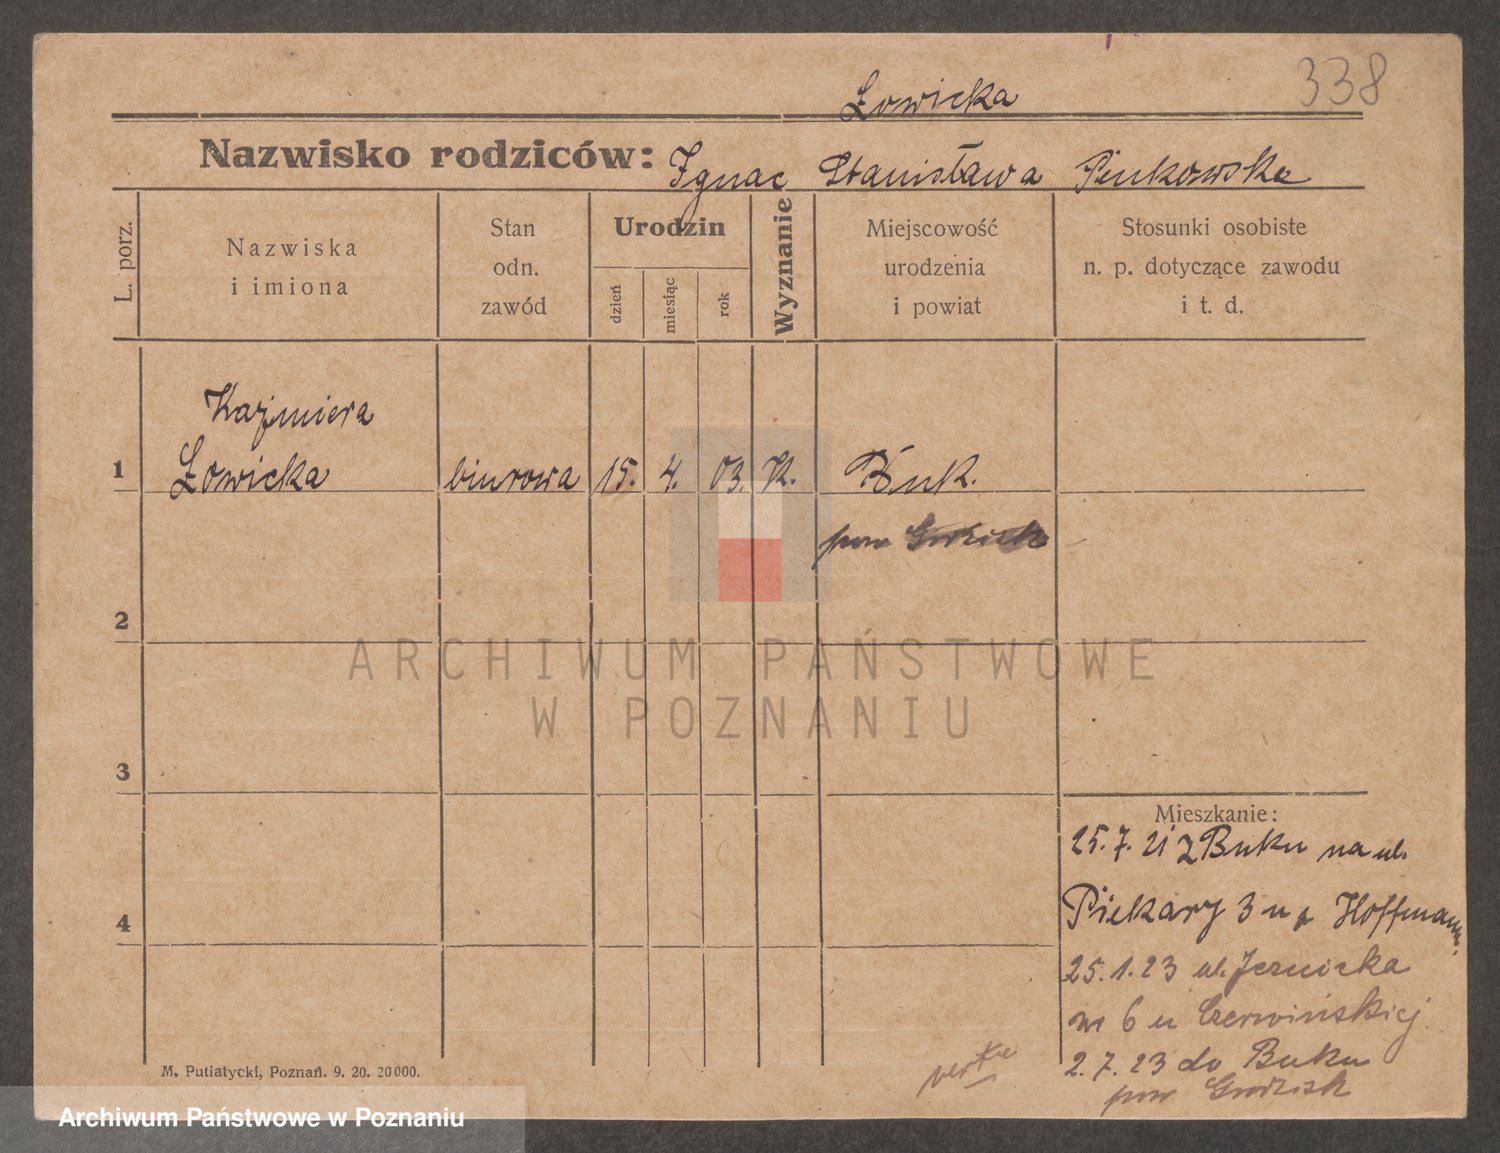 Łowicka
338
Nazwisko rodziców: Ignac Stanisława Pinkowska
L. porz.
Nazwiska i imiona
Stan odn. zawód
Urodzin
dzień
miesiąc
rok
Wyznanie
Miejscowość urodzenia i powiat
Stosunki osobiste n. p. dotyczące zawodu i t. d.
Kaźmiera
1 Łowicka biurowa 15. 4. 03. K. Buk.
pow Grodzisk
2
ARCHIWUM PAŃSTWOWE
W POZNANIU
3
Mieszkanie:
25. 7. 21 z Buku na ul.
4 Piekary 3 u p Hoffmann.
25. 1. 23 ul. Jeżnicka
nr 6 u Czerwińskiej
2. 7. 23 do Buku
pow Grodzisk
verte
M. Putiatycki, Poznań. 9. 20. 20000.
Archiwum Państwowe w Poznaniu